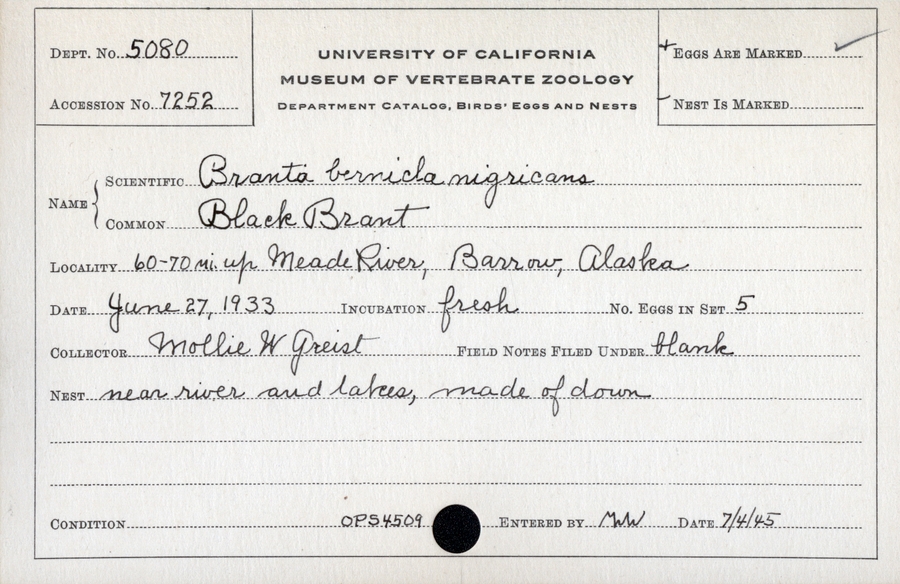 Dept. No. 5080
Accession No. 7252
UNIVERSITY OF CALIFORNIA
MUSEUM OF VERTEBRATE ZOOLOGY
Department Catalog, Birds' Eggs and Nests
+ Eggs Are Marked ✓
- Nest Is Marked
Name { Scientific Branta bernicla nigricans
Common Black Brant
Locality 60-70 mi. up Meade River, Barrow, Alaska
Date June 27, 1933 Incubation fresh No. Eggs in Set 5
Collector Mollie W Greist Field Notes Filed Under blank
Nest near river and lakes, made of down
Condition OPS4509 Entered by Date 7/4/45